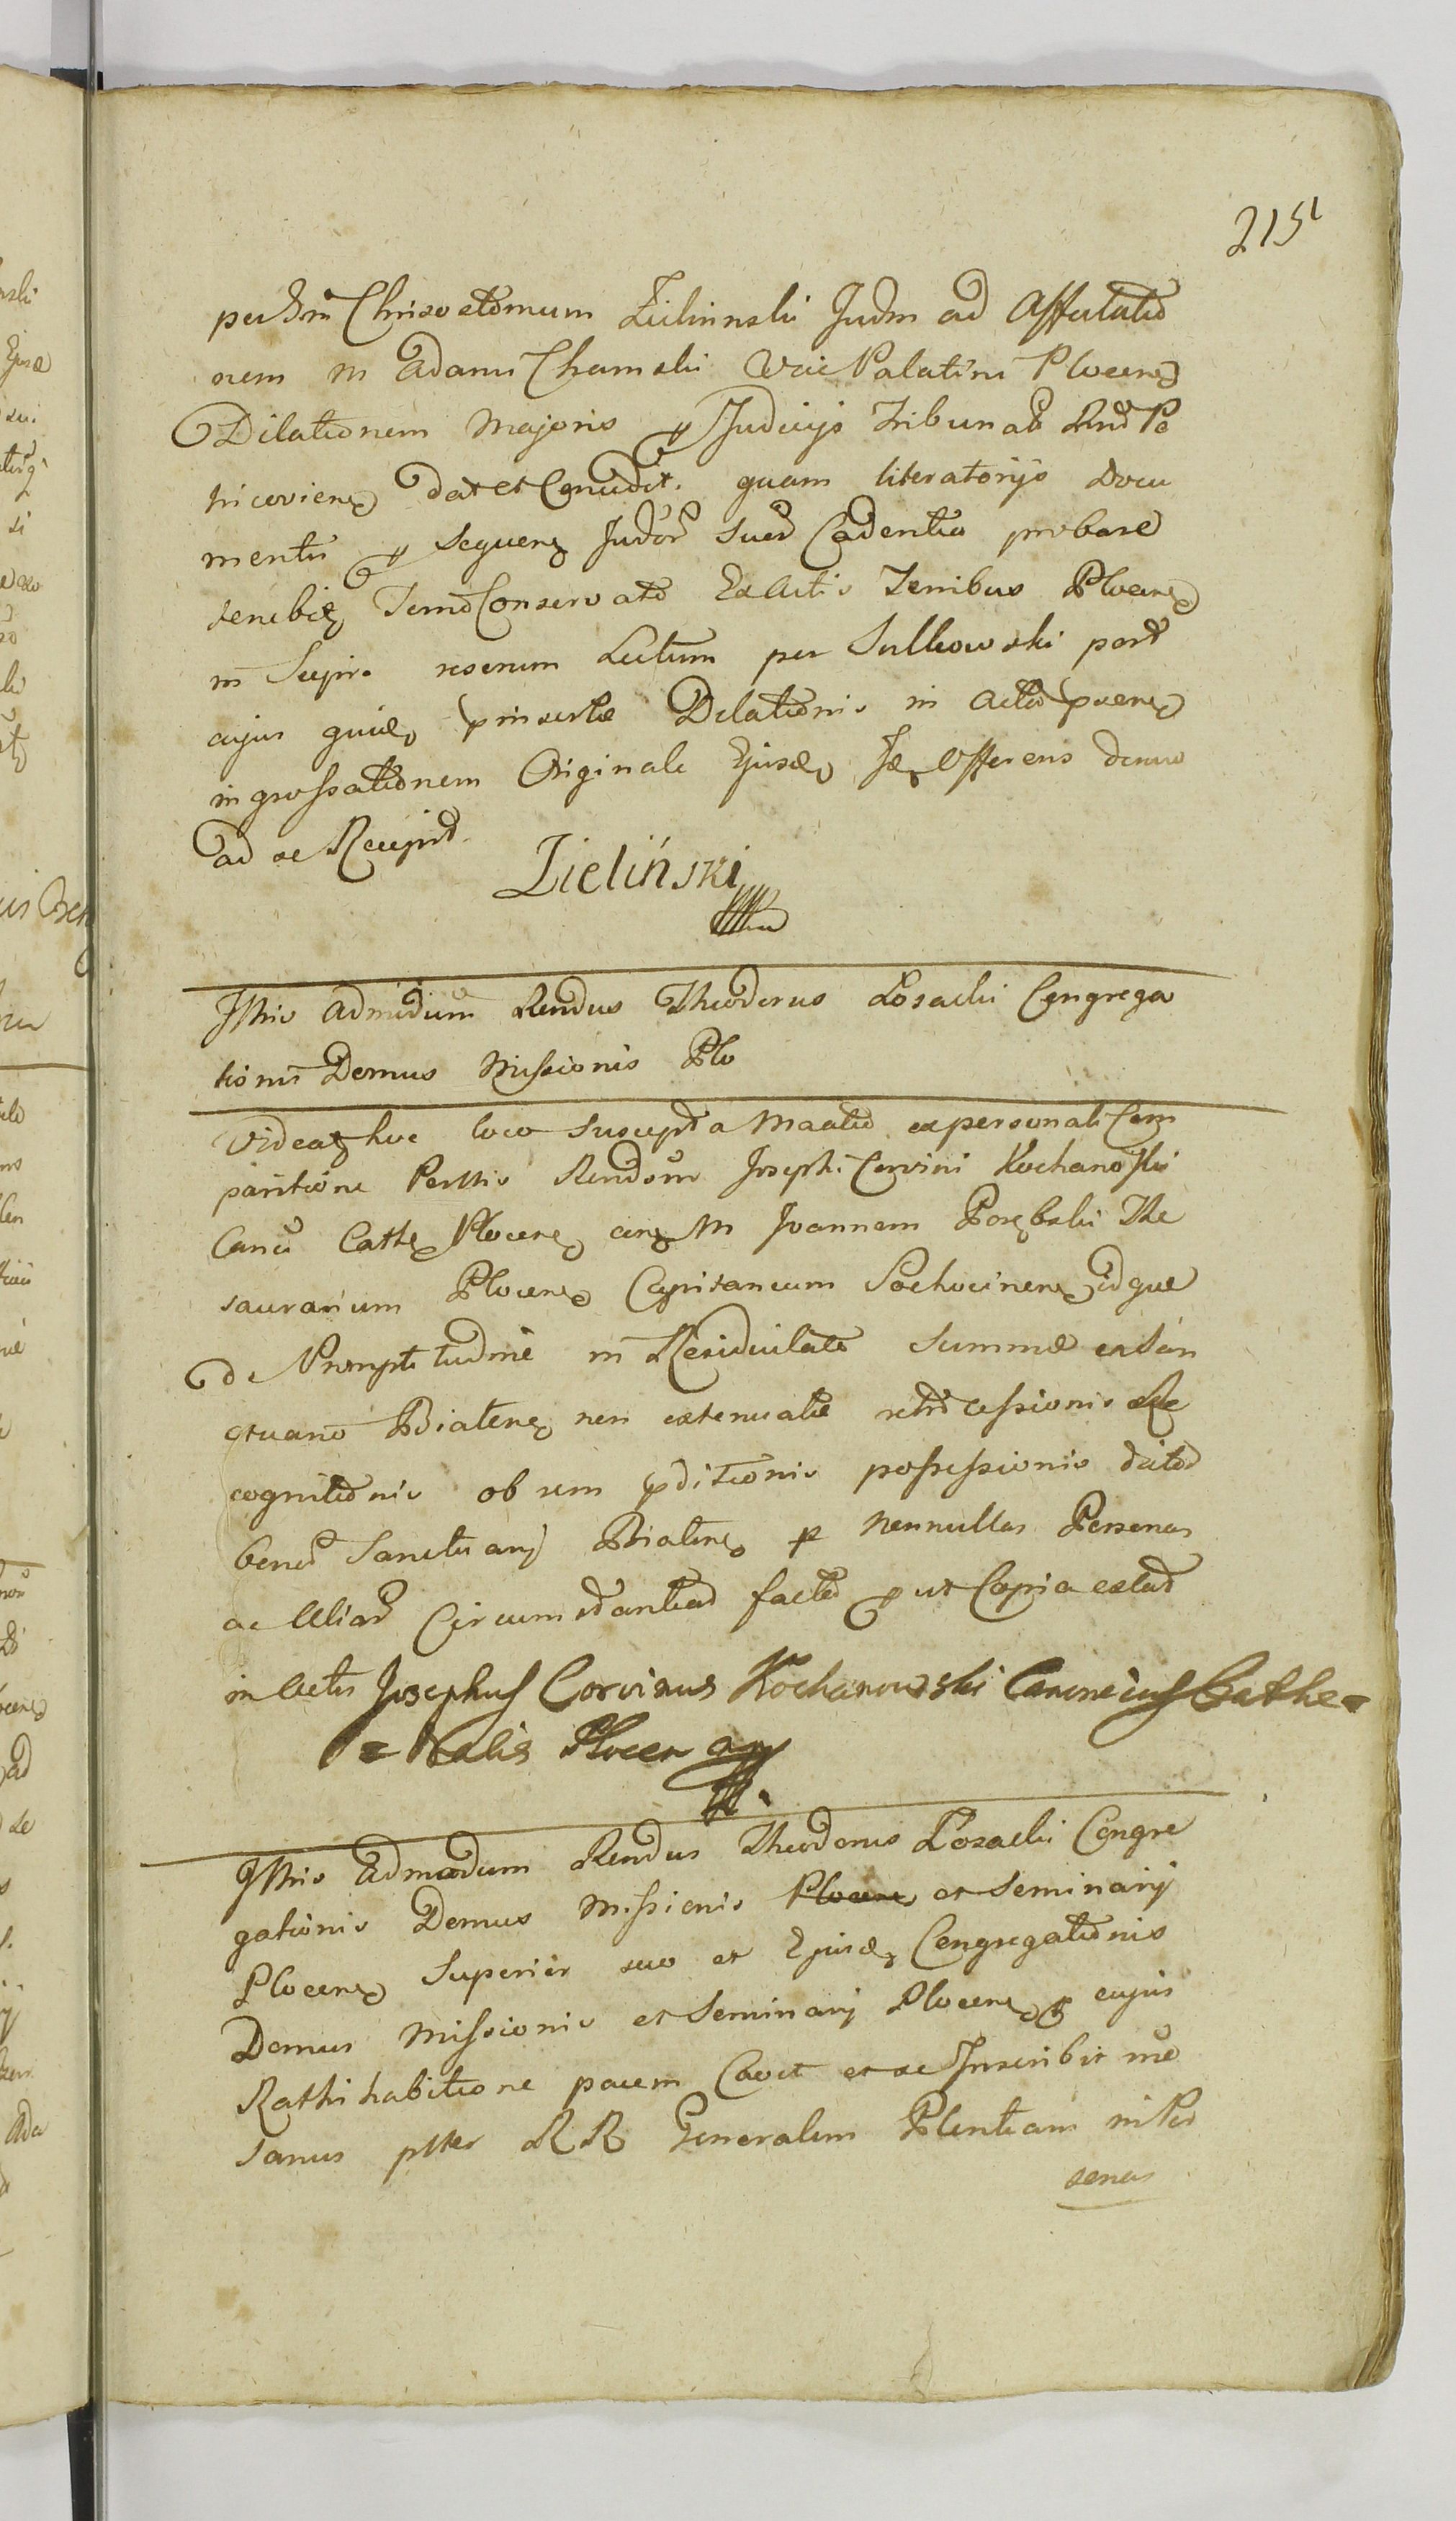 215
per Grm Chrisostomum Zielinski Judm ad Affectatio
nem M Adami Chamski Vice Palatini Plocens
Dilationem Majoris Judicijs Tribunal Rnd Pe
tricoviens dat et Concedit. quam literatorijs docu
mentis sequen Judor suor Cadentia probare
tenebit Ex Actis Trribus Plocens
in Supra Lectum per Sulkowski post
cujus quide pinsertae Dilationis in acta psens
ingrossationem Originale Ejusd Offerens denuo
ad se Recepit
Zieliński
Illtris admodum Rendus Theodorus Losacki Congrega
tionis Domus Missionis Plo
Videatr hoc loco suscepta Maatio ex personali Com
paritione Perttris Rendor Josephi Corvini Kochanowski
Canci Cathe Plocens M Joannem Porębski The
saurarium Plocens Capitaneum Sochocinens idque
de Promptitudine in Residuitate summae
non extenuatae retrocessionis Re
cognitionis ob rem pditionis possessionis dictor
bonor Sanctuarij nonnullas Personas
ac Aliar Circumstantiar facta ut Copia extat
in Actis Josephus Corvinus Kochanowski Canonicus Cathe=
=Dralis Plocen mpp
Illtris Admodum Rendus Theodorus Losacki Congre
gationis Domus Missionis Plocens et Seminarij
Plocens Superior suo et Ejusd Congregationis
Domus Missionis et Seminarij Plocens cujus
Rathi habitione pacem Cavet et se Inscribit me
sanus ptter R R Generalem Plentiam in Per
sonas